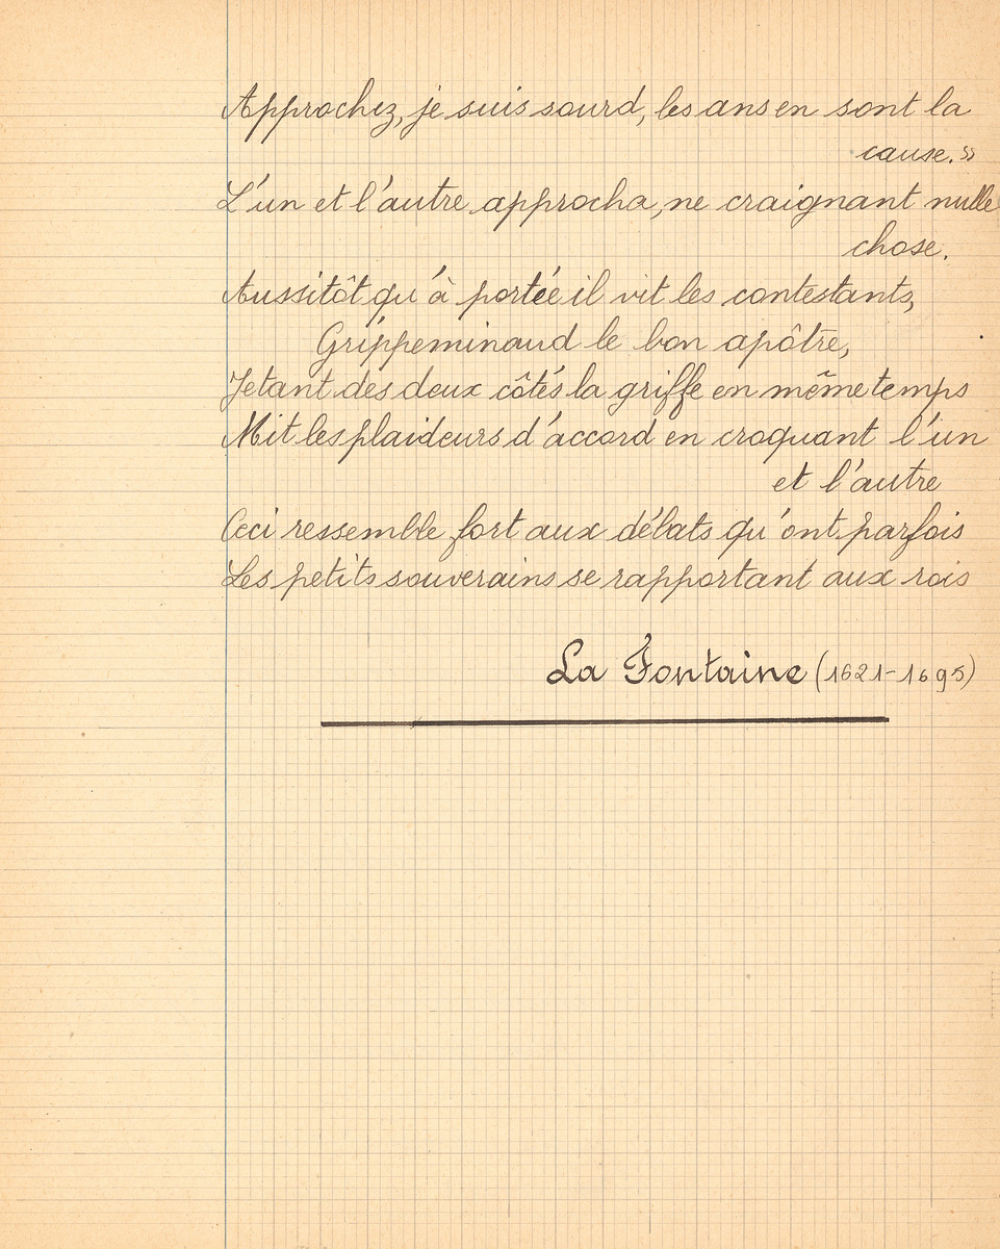 Approchez, je suis sourd, les ans en sont la
cause.»
L'un et l'autre approcha, ne craignant nulle
chose.
Aussitôt qu'à portée il vit les contestants,
Grippeminaud le bon apôtre,
Jetant des deux côtés la griffe en même temps
Mit les plaideurs d'accord en croquant l'un
et l'autre
Ceci ressemble fort aux débats qu'ont parfois
Les petits souverains se rapportant aux rois
La Fontaine (1621-1695)